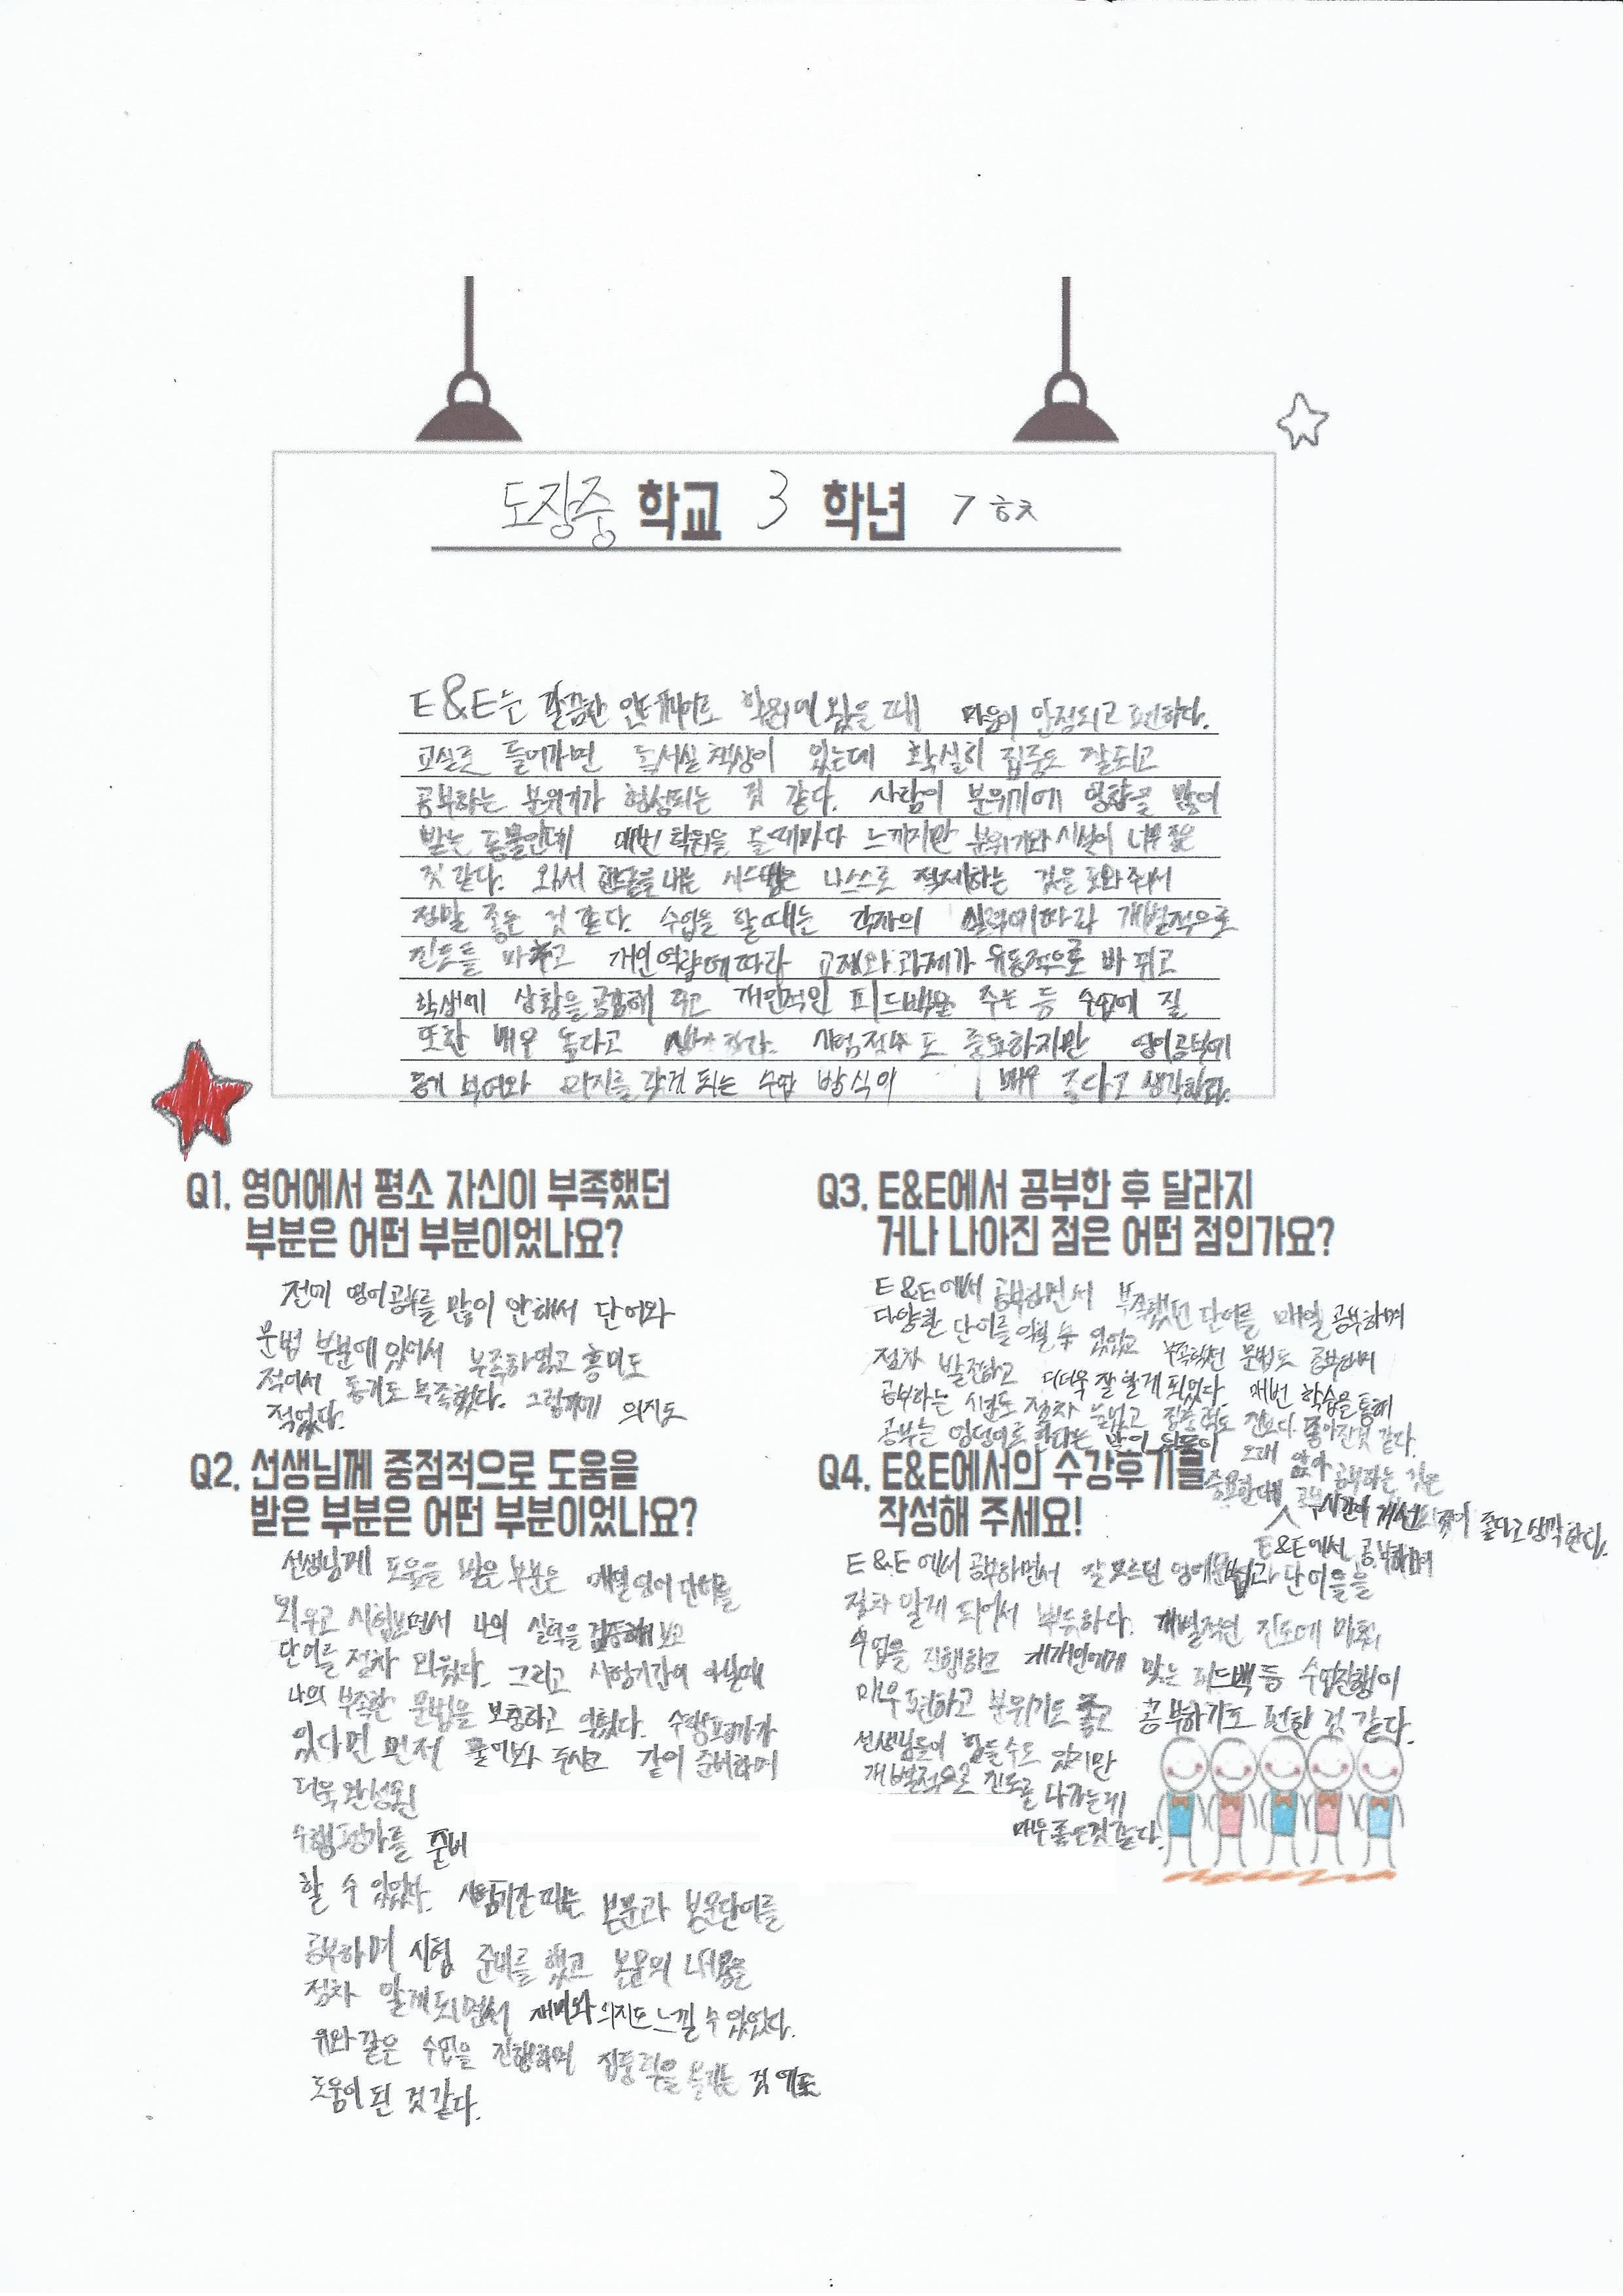 도장중 학교 3 학년
E&E는 깔끔한 인테리어로 학원에 왔을 때 마음이 안정되고 편안하다.
교실로 들어가면 독서실 책상이 있는데 확실히 집중도 잘되고
공부하는 분위기가 형성되는 것 같다. 사람이 분위기에 영향을 많이
받는 동물인데 매번 학원을 올때마다 느끼지만 분위기와 시설이 너무 좋은
것 같다. 와서 핸드폰을 내는 시스템은 스스로 절제하는 것을 도와줘서
정말 좋은 것 같다. 수업을 할때는 각자의 실력에따라 개별적으로
진도를 나가고 개인역량에따라 교재와 과제가 유동적으로 바뀌고
학생에 상황을 공감해 주고 개인적인 피드백을 주는 등 수업에 질
또한 매우 높다고 생각한다. 시험점수도 중요하지만 영어공부에
동기부여와 의지를 갖게 되는 수업 방식이 매우 좋다고 생각한다.
Q1. 영어에서 평소 자신이 부족했던
부분은 어떤 부분이었나요?
전에 영어공부를 많이 안해서 단어와
문법 부분에 있어서 부족하였고 흥미도
적어서 동기도 부족했다. 그렇기에 의지도
적었다.
Q2. 선생님께 중점적으로 도움을
받은 부분은 어떤 부분이었나요?
선생님께 도움을 받은 부분은 매일 영어 단어를
외우고 시험보면서 나의 실력을 검증해 보고
단어를 점차 외웠다. 그리고 시험기간이 아닐때
나의 부족한 문법을 보충하고 익혔다. 수행평가가
있다면 먼저 물어봐 주시고 같이 준비하며
더욱 완성된
수행평가를 준비
할 수 있었다. 시험기간 때는 본문과 본문단어를
공부하며 시험 준비를 했고 본문의 내용을
점차 알게되면서 재미와 의지도 느낄 수 있었다.
위와 같은 수업을 진행하며 집중력을 올리는 것에도
도움이 된 것 같다.
Q3. E&E에서 공부한 후 달라지
거나 나아진 점은 어떤 점인가요?
E&E에서 공부하면서 부족했던 단어를 매일 공부하며
다양한 단어를 익힐 수 있었고 부족했던 문법도 공부하며
점차 발전하고 더더욱 잘 알게 되었다. 매번 학습을 통해
공부하는 시간도 점차 늘었고 집중력도 전보다 좋아진것 같다.
공부는 엉덩이로 한다는 말이 있듯이 오래 앉아 공부하는 것은
중요한데 E&E에서 공부하며 공부시간이 개선된 것이 좋다고 생각한다.
Q4. E&E에서의 수강후기를
작성해 주세요!
E&E에서 공부하면서 잘 모르던 영어문법과 단어들을
점차 알게 되어서 뿌듯하다. 개별적인 진도에 맞춰
수업을 진행하고 개개인에게 맞는 피드백 등 수업진행이
매우 편하고 분위기도 좋고 공부하기도 편한 것 같다.
선생님들이 힘들수도 있지만
개별적으로 진도를 나가는게
매우 좋은것 같다.